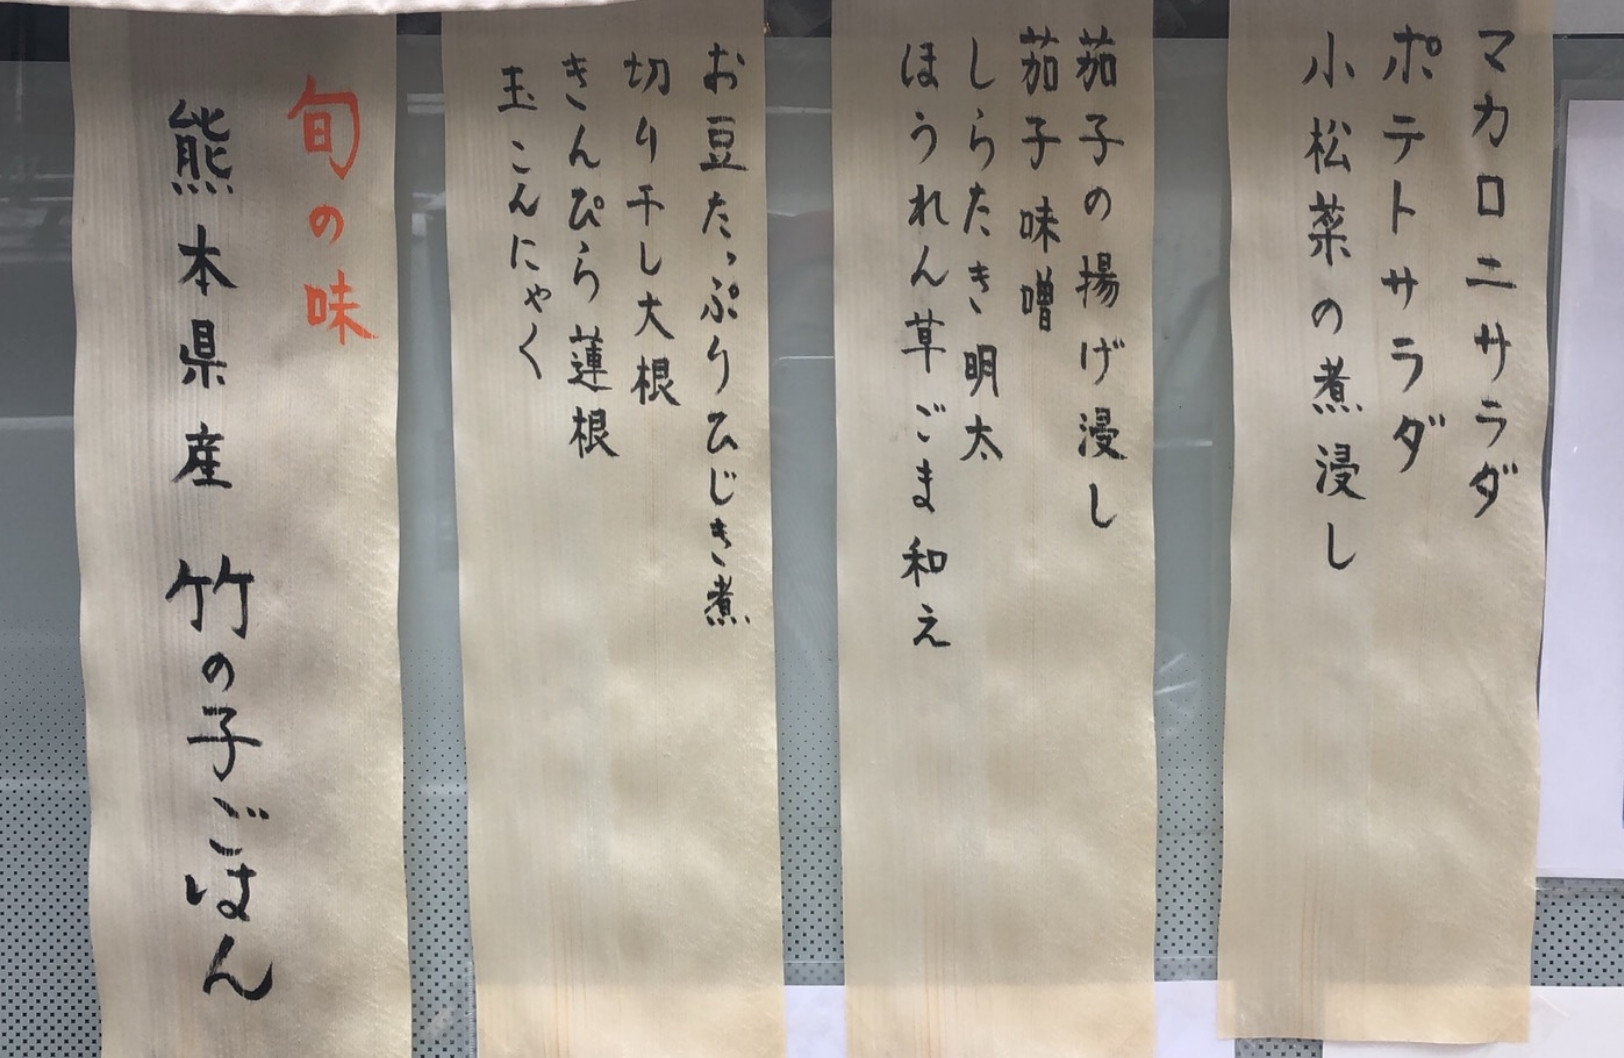 マカロニサラダ
ポテトサラダ
小松菜の煮浸し
茄子の揚げ浸し
茄子味噌
しらたき明太
ほうれん草ごま和え
お豆たっぷりひじき煮
切り干し大根
きんぴら蓮根
玉こんにゃく
旬の味
熊本県産 竹の子ごはん